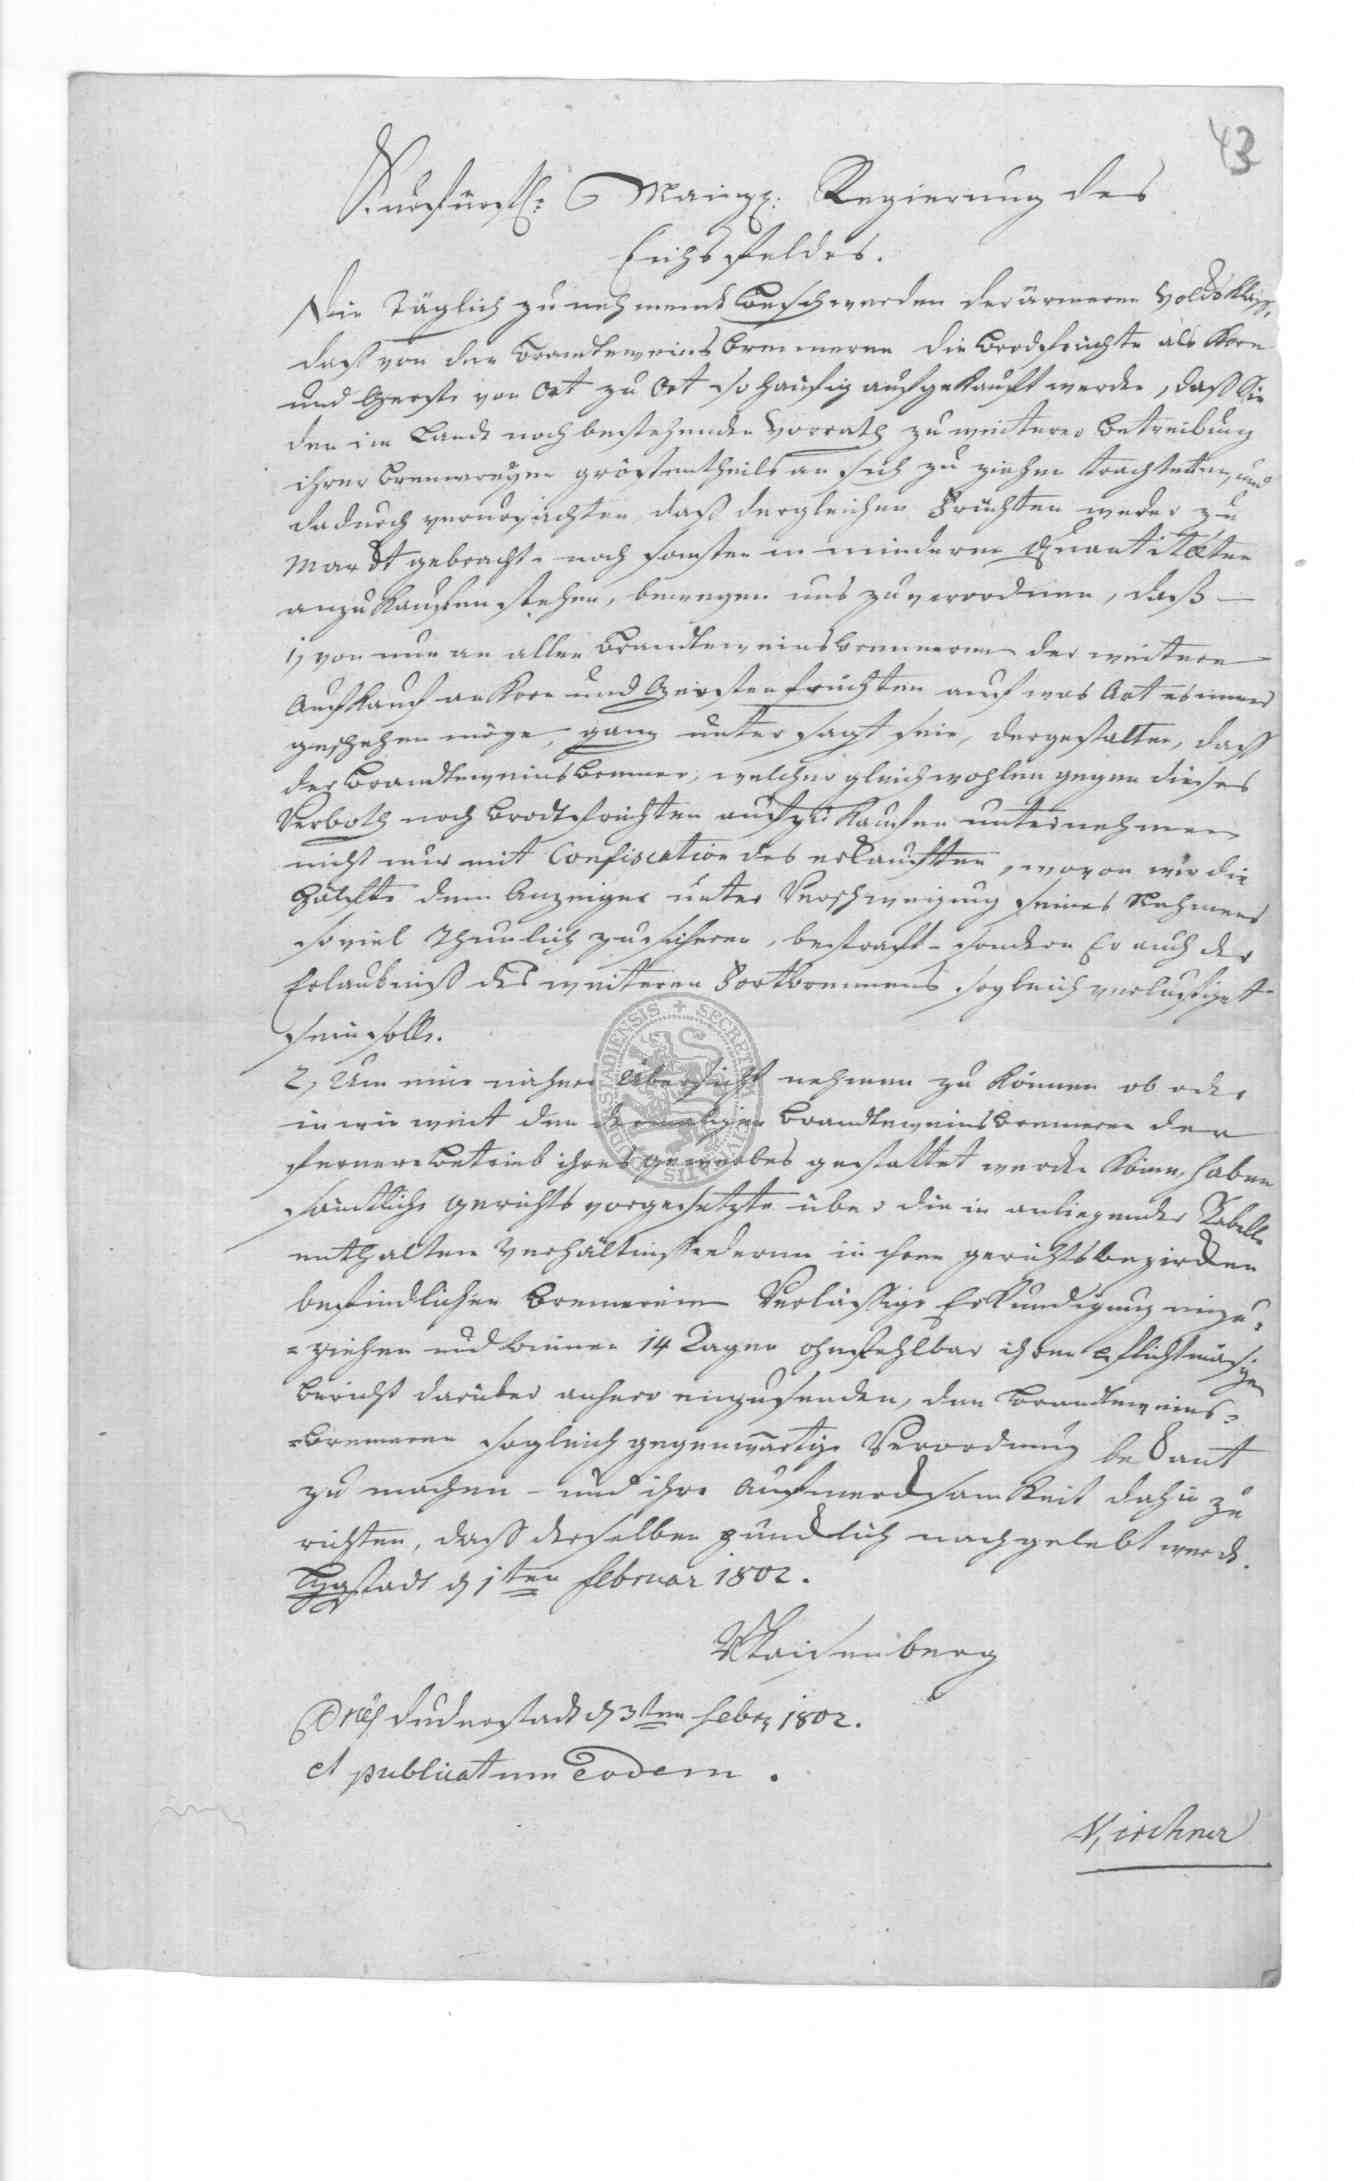 43
Kurfürstl: Mainzz: Regierung des
Eichsfeldes.
Die Täglich zunehmende Beschwerden der ärmeren Volcksklasse,
daß von den Brandteweinsbrenneren die Brodfrüchte als Korn
und Gerste von Ort zu Ort so häufig aufgekauft werde, daß Sie
den im Lande noch bestehenden Vorrath zu weiterer Betreibung
ihrer Brennereyen gröstentheils an sich zu ziehen trachteten, und
dadurch verursachten, daß dergleichen Früchten weder zu
Marckt gebracht- noch sonsten in minderen Quantitaeten
anzukaufen stehen, bewegen uns zu verordnen, daß
1, von nun an allen Brandteweinsbrenneren der weitere
Aufkauf an Korn und Gerstenfrüchten auf was Art es immer
geschehen möge, ganz untersagt seie, dergestalten, daß
der Brandteweinsbrenner, welcher gleichwohlen gegen dieses
Verboth noch Brodfrüchten aufzukaufen unternehmen
nicht nur mit Confiscation des erkauften, wovon wir die
Hälfte dem Anzeiger unter Verschweigung seines Nahmens
soviel Thunlich zusicheren, bestraft- sondern Er auch der
Erlaubniß des weiteren Fortbrennens sogleich verlustiget
sein solle.
2, Um eine nähere Übersicht nehmen zu können ob oder
in wie weit den dermaligen Brandteweinsbrenneren der
fernere Betrieb ihres gewerbes gestattet werde könne, haben
sämtliche gerichtsvorgesetzte über die in anliegender Tabelle
enthaltene Verhältnisse deren in ihren gerichtsbezircken
befindlichen Brennereien Verläßige Erkundigung einzu-
=ziehen und binnen 14 Tagen ohnfehlbar ihren pflichtmäsigen
Bericht darüber anhero einzusenden, den Brandteweins=
=brenneren sogleich gegenwärtige Verordnung bekant
zu machen - und ihre Aufmercksamkeit dahin zu
richten, daß derselben püncktlich nachgelebt werde.
Hgstadt d 1ten Februar 1802.
Duderstadt d 3ten Febr 1802.
et publicatum Eodem.
Kirchner
SECRETUM CIVITATIS DUDERSTADIENSIS